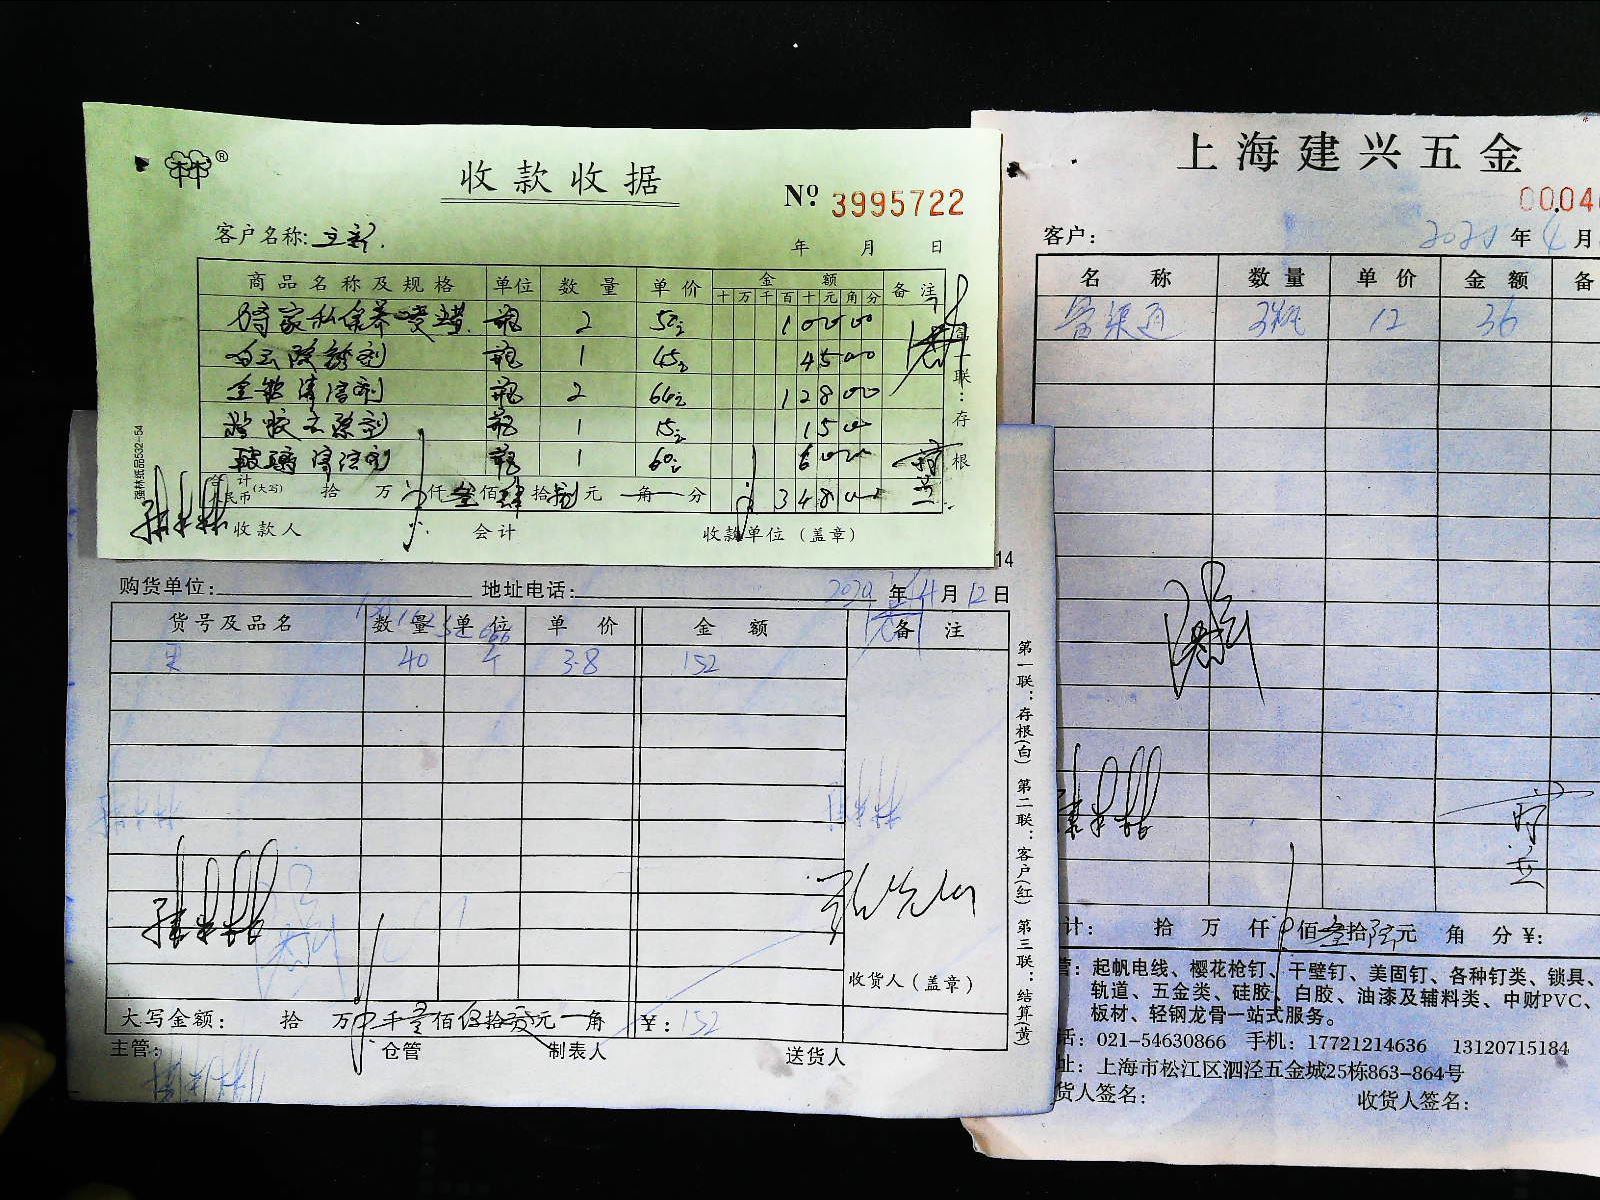 收款收据
Nº 3995722
客户名称:
年 月 日
商品名称及规格 单位 数量 单价 金额 备注
十万千百十元角分
家私保养喷蜡 瓶 2 50 100 00
瓶 1 45 45 00
清洁剂 瓶 2 64 128 00
瓶 1 15 15
玻璃清洁剂 瓶 1 60 60
合计人民币(大写) 拾 万 仟叁佰肆拾捌元 角 分 348
收款人 会计 收款单位(盖章)
第一联:存根
强林纸品532-54
14
购货单位: 地址电话: 2020年4月12日
货号及品名 数量 单位 单价 金额 备注
40 个 3.8 152
收货人(盖章)
大写金额: 拾 万 千壹佰伍拾贰元 角 ¥:152
主管: 仓管 制表人 送货人
第一联:存根(白) 第二联:客户(红) 第三联:结算(黄
上海建兴五金
0004
客户: 2020年4月
名称 数量 单价 金额 备
管渠通 3瓶 12 36
计: 拾 万 仟 佰叁拾陆元 角 分¥:
营:起帆电线、樱花枪钉、干壁钉、美固钉、各种钉类、锁具、
轨道、五金类、硅胶、白胶、油漆及辅料类、中财PVC、
板材、轻钢龙骨一站式服务。
话:021-54630866 手机:17721214636 13120715184
址:上海市松江区泗泾五金城25栋863-864号
货人签名: 收货人签名: